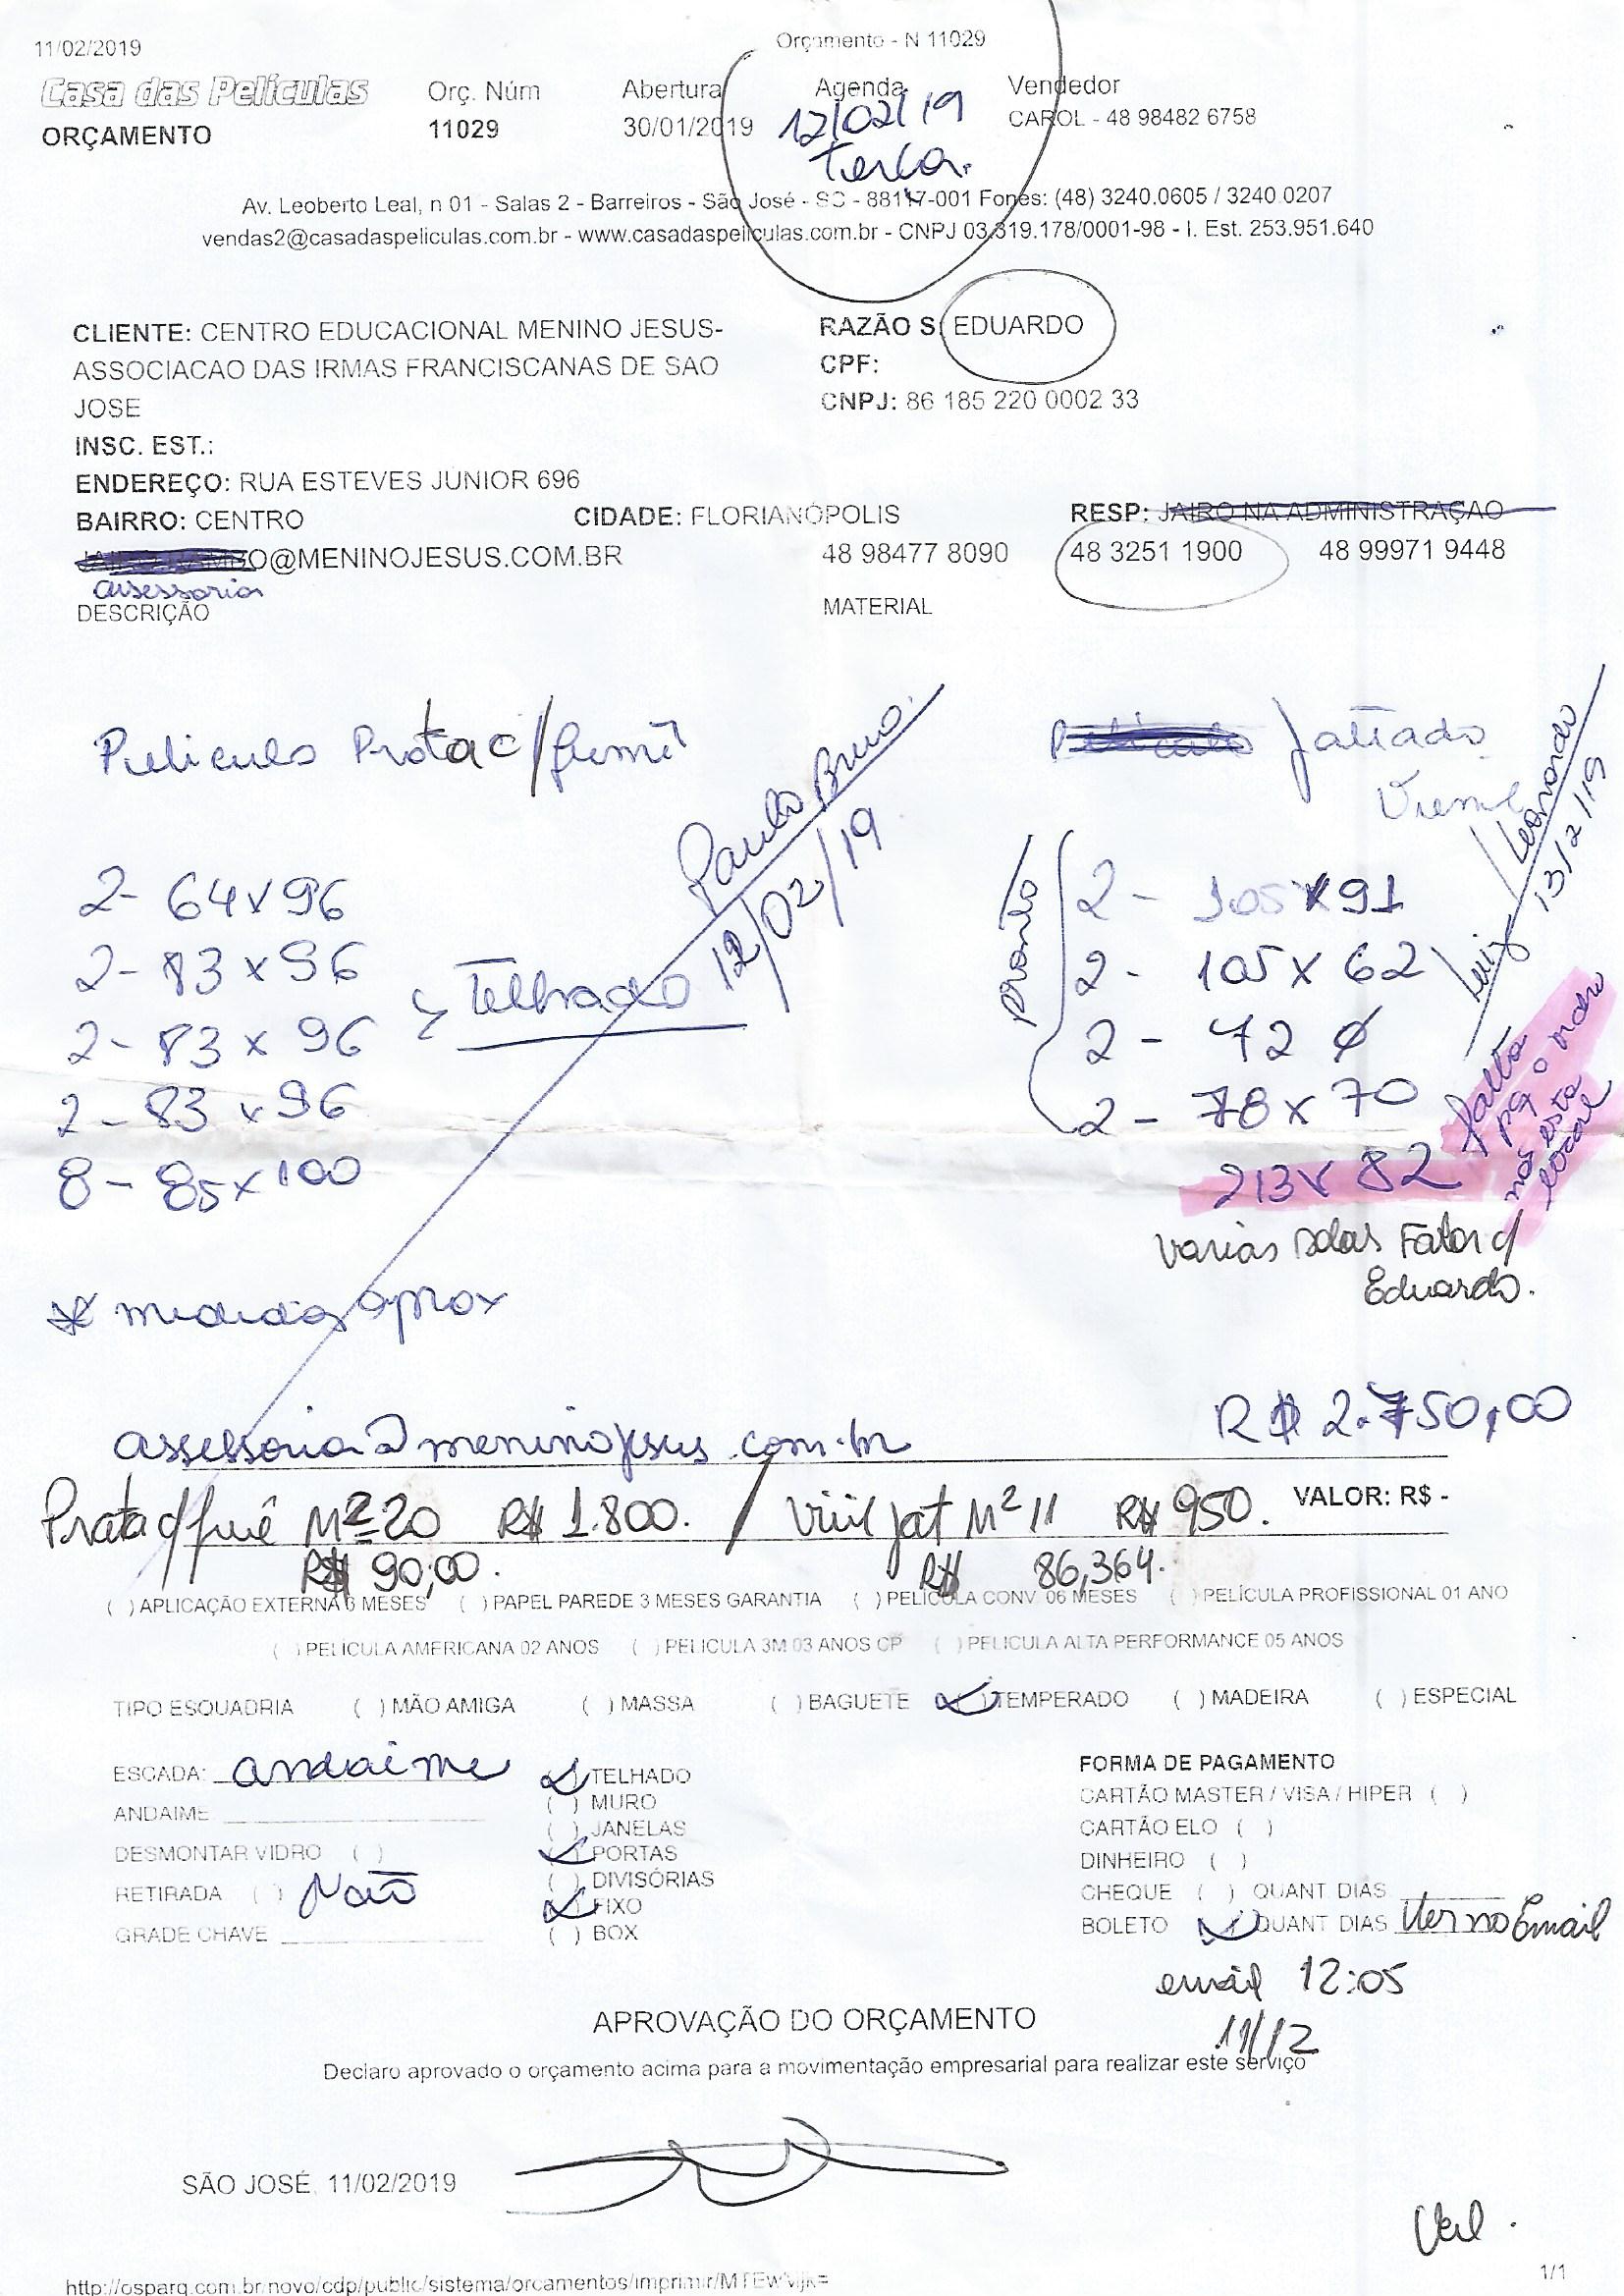 11/02/2019
Orçamento - N 11029
Casa das Películas
ORÇAMENTO
Orç. Núm
11029
Abertura
30/01/2019
Agenda
12/02/19
Terça.
Vendedor
CAROL - 48 98482 6758
Av. Leoberto Leal, n 01 - Salas 2 - Barreiros - São José - SC - 88117-001 Fones: (48) 3240.0605 / 3240.0207
vendas2@casadaspeliculas.com.br - www.casadaspeliculas.com.br - CNPJ 03.319.178/0001-98 - I. Est. 253.951.640
CLIENTE: CENTRO EDUCACIONAL MENINO JESUS-
ASSOCIACAO DAS IRMAS FRANCISCANAS DE SAO
JOSE
RAZÃO S: EDUARDO
CPF:
CNPJ: 86 185 220 0002 33
INSC. EST.:
ENDEREÇO: RUA ESTEVES JUNIOR 696
BAIRRO: CENTRO
CIDADE: FLORIANÓPOLIS
RESP: JAIRO NA ADMINISTRAÇAO
O@MENINOJESUS.COM.BR
48 98477 8090
48 3251 1900
48 99971 9448
assessoria
DESCRIÇÃO
MATERIAL
Pelicula Prata c/
jatiado
Paulo Bruno
12/02/19
Luiz / Leonardo
13/2/19
2- 64x96
2- 83x96
2- 83x96
2- 83x96
8- 85x100
Telhado
pronto
2- 105x91
2- 105x62
2- 72 ø
2- 78x70
213x82
falta
pq o vidro
não esta
local
varias salas Falar c/
Eduardo.
* medidas aprox
R$ 2.750,00
assessoria@meninojesus.com.br
Prata c/ M² 20 R$ 1.800. / jat M² 11 R$ 950.
VALOR: R$ -
R$ 90,00.
R$ 86,364.
( ) APLICAÇÃO EXTERNA 6 MESES ( ) PAPEL PAREDE 3 MESES GARANTIA ( ) PELÍCULA CONV. 06 MESES ( ) PELÍCULA PROFISSIONAL 01 ANO
( ) PELÍCULA AMERICANA 02 ANOS ( ) PELICULA 3M 03 ANOS CP ( ) PELICULA ALTA PERFORMANCE 05 ANOS
TIPO ESQUADRIA ( ) MÃO AMIGA ( ) MASSA ( ) BAGUETE ( ) TEMPERADO ( ) MADEIRA ( ) ESPECIAL
ESCADA: andaime
ANDAIME
DESMONTAR VIDRO ( )
RETIRADA ( ) Não
GRADE CHAVE
( ) TELHADO
( ) MURO
( ) JANELAS
( ) PORTAS
( ) DIVISÓRIAS
( ) FIXO
( ) BOX
FORMA DE PAGAMENTO
CARTÃO MASTER / VISA / HIPER ( )
CARTÃO ELO ( )
DINHEIRO ( )
CHEQUE ( ) QUANT DIAS
BOLETO ( ) QUANT DIAS Ver no Email
email 12:05
11/12
APROVAÇÃO DO ORÇAMENTO
Declaro aprovado o orçamento acima para a movimentação empresarial para realizar este serviço
SÃO JOSÉ, 11/02/2019
http://osparq.com.br/novo/cdp/public/sistema/orcamentos/imprimir/MTEwMjk=
1/1